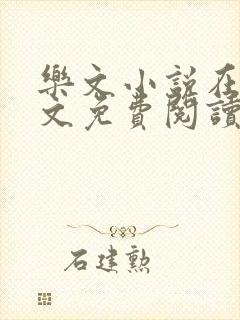 樂文小說在
文免費閱讀
石建勲